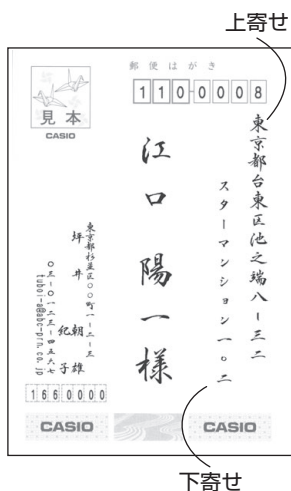 上寄せ
郵便はがき
見本
CASIO
110-0008
東京都台東区池之端八ー三二
スターマンション一〇二
江口 陽一様
東京都杉並区〇〇町一ー二ー三
坪井 紀朝
子雄
〇三ー〇一二三ー四五六七
tuboi-a@abc-prn.co.jp
1660000
CASIO
CASIO
下寄せ